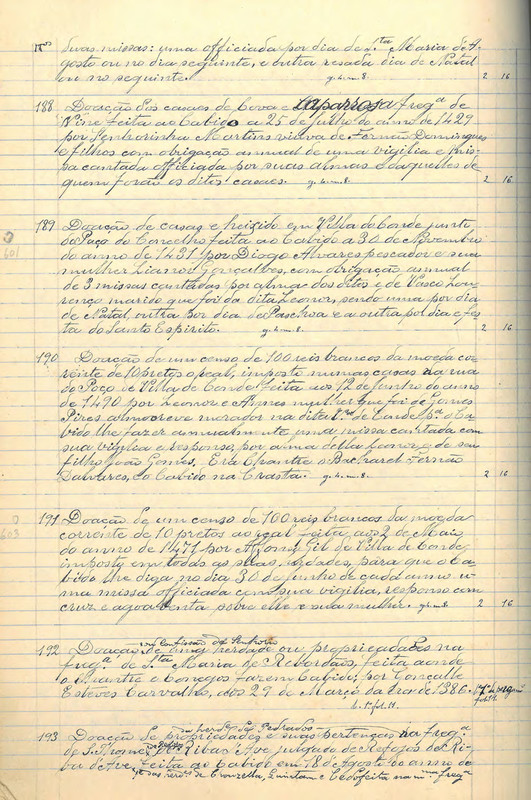 Nos duas missas: uma officiada por dia de Sta Maria de A-
gosto ou no dia seguinte, e outra resada dia de Natal
ou no seguinte. g. 4. m. 8. 2 16
188 Doação dos casaes de Cova e Laparrosa fregª de
Vine feita ao Cabido a 25 de Julho do anno de 1429
por Senhorinha Martins viuva de Fernão Domingues
e filhos com obrigação annual de uma vigilia e mis-
sa cantada officiada por suas almas e daquelles de
quem forão os ditos casaes. g. 4. m. 8. 2 16
189 Doação de casas e heixido em Villa do Conde junto
do Paço do Concelho feita ao Cabido a 30 de Novembro
do anno de 1431 por Diogo Alvares pescador e sua
mulher Lianor Gonçalves, com obrigação annual
de 3 missas cantadas por alma dos ditos e de Vasco Lou-
renço marido que foi da dita Leonor, sendo uma por dia
de Natal, outra por dia de Paschoa e a outra por dia e fes-
ta do Santo Espirito. g. 4. m. 8. 2 16
190 Doação de um censo de 100 reis brancos da moeda cor-
rente de 10 pretos o real, imposto numas casas na rua
do Poço de Villa do Conde feita aos 12 de Junho do anno
de 1490 por Leonor Annes mulher que foi de Gomes
Pires almocreve morador na dita Vª do Conde pª o Ca-
bido lhe fazer annualmente uma missa cantada com
sua vigilia e responso, por alma della Leonor e de seu
filho João Gomes. Era Chantre o Bacharel Fernão
do Cabido na Crasta. g. 4. m. 8. 2 16
603
191 Doação de um censo de 100 reis brancos da moeda
corrente de 10 pretos ao real feita aos 2 de Maio
do anno de 1477 por Affonso Gil de Villa do Conde,
imposto em todas as suas herdades, para que o Ca-
bido lhe diga no dia 30 de Junho de cada anno u-
ma missa officiada com sua vigilia, responso com
cruz e agoa benta sobre elle e sua mulher. g. 4. m. 8. 2 16
192 Doação ou Confissão de Senhorio
de uma herdade ou propriedades na
fregª de Sta Maria de Rebordãos, feita aonde
o Chantre e Conegos fazem Cabido, por Gonçallo
Esteves Carvalho, aos 29 de Março da Era de 1386.
193 Doação de propriedades e suas pertenças na fregª
de S. Thomé de Riba d'Ave julgado de Refojos de Ri-
ba de Ave, feita ao Cabido em 18 de Agosto do anno de